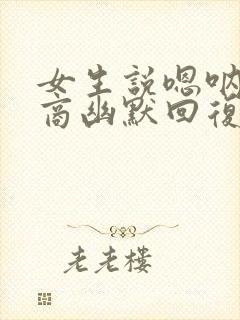 女生説嗯吶
高幽默回復
老老樓